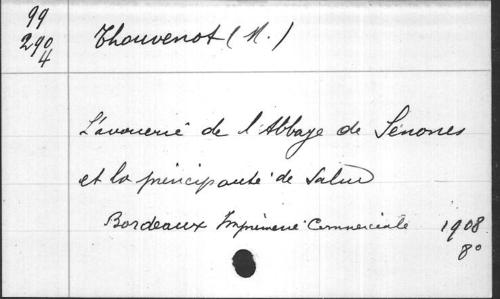 99
290
4
Thouvenot (H.)
L'avouerie de l'Abbaye de Senones
et la principauté de Salm
Bordeaux Imprimerie Commerciale 1908
8°